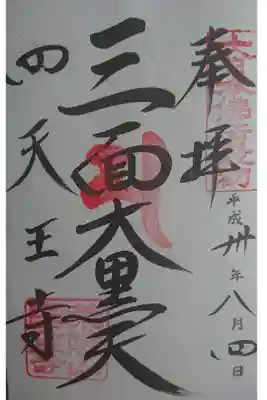 奉拝
平成卅年八月四日
三面大黒天
四天王寺